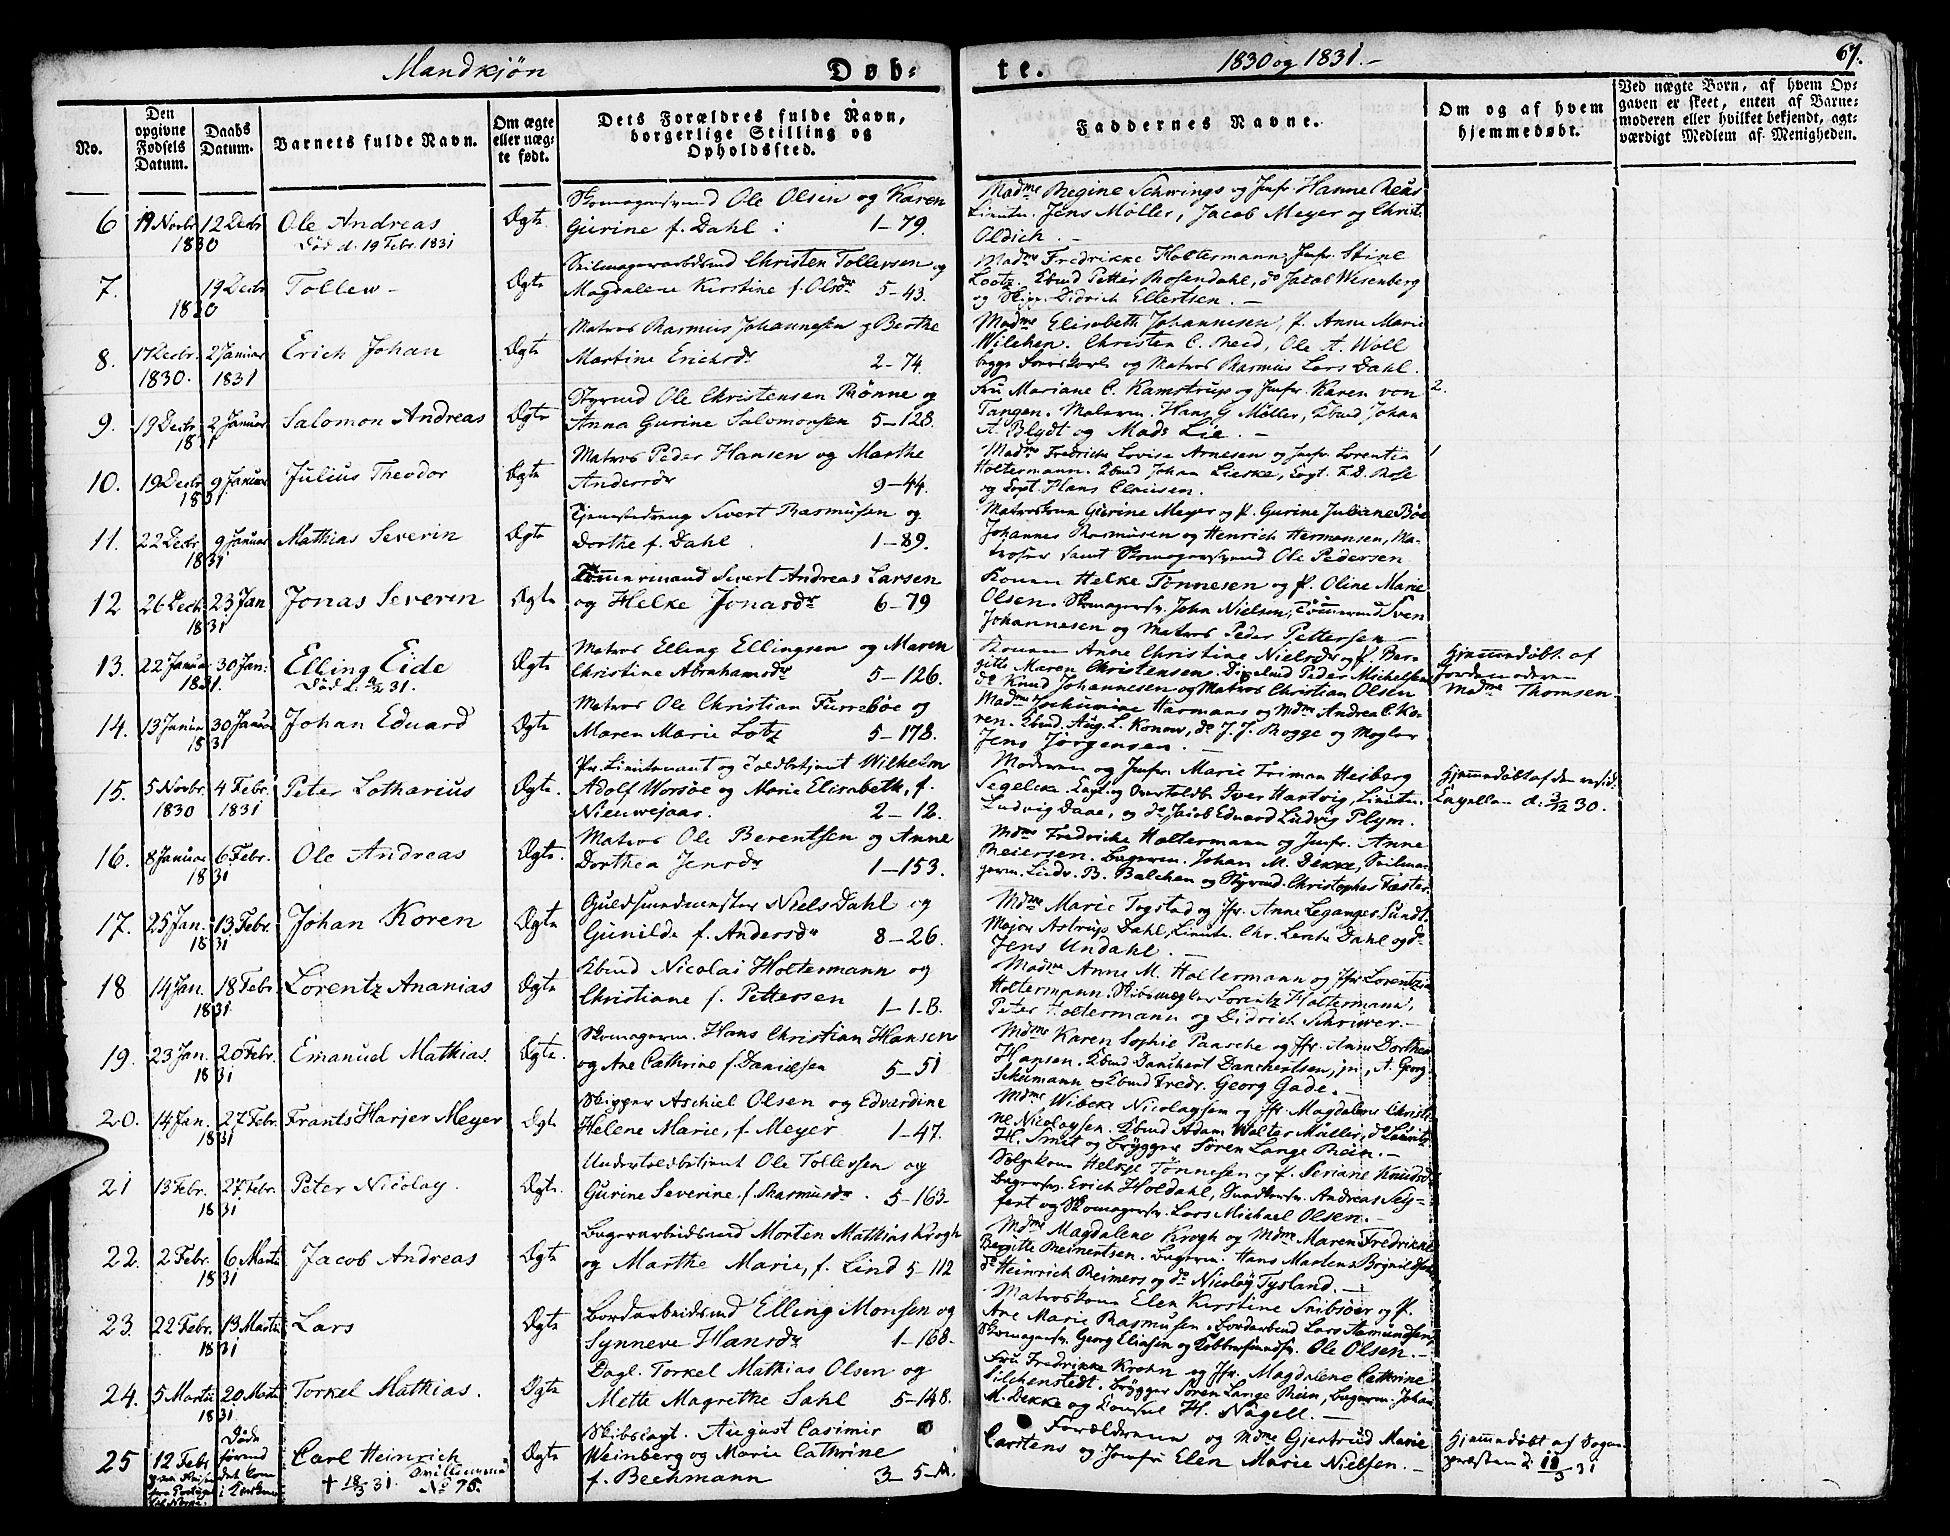 Mandkjön
Døb-
te.
1830 og 1831.-
67.
No.
Den opgivne Fødsels Datum.
Daabs Datum.
Barnets fulde Navn.
Om ægte eller uægte født.
Dets Forældres fulde Navn, borgerlige Stilling og Opholdssted.
Faddernes Navne.
Om og af hvem hjemmedøbt.
Ved uægte Børn, af hvem Opgaven er skeet, enten af Barnemoderen eller hvilket bekjendt, agtværdigt Medlem af Menigheden.
6 19 Novbr 12 Decbr Ole Andreas Ægte Skomagersvend Ole Olsen og Karen
1830 Död d. 19 Febr. 1831 Gurine f. Dahl : 1-79.
Madme Regine Schwings og Jmfr Hanne Reus
Lieutn. Jens Møller, Jacob Meyer og Christ.
Oldich. -
7. 19 Decbr Tollew - Ægte Seilmagerarbdsmd Christen Tollevsen og
1830 Magdalene Kirstine f. Olsdr 5-43.
Madme Fredrikke Holtermann, Jmfr. Stine
Lootz. Kbmd Petter Rosendahl, do Jacob Wesenberg
og Skipp. Didrich Ellertsen. -
8. 17 Decbr. 2 Januar Erich Johan Ægte Matros Rasmus Johannesen og Berthe
1830. 1831 Martine Erichsdr 2-74.
Madme Elisabeth Johannesen, P. Anne Marie
Wilchen. Christen C. Meid, Ole A. Woll
begge Ungkarle og Matros Rasmus Lars Dahl.
9. 19 Decbr 2 Januar Salomon Andreas Ægte Styrmd Ole Christensen Rönne og
1831 Anna Gurine Salomonsen 5-128.
Fru Mariane C. Kamstrup og Jmfr. Karen von
Tangen. Malerm. Hans G Møller, Kbmd Johan
A. Blydt og Mads Lie. -
2.
10. 19 Decbr 9 Januar Julius Theodor Ægte Matros Peder Hansen og Marthe
1831 Andersdr 9-44.
Madme Fredriche Lovise Arnesen og Jmfr. Lorentia
Holtermann. Kbmd Johan Lieske, Capt. F. D. Rose
og Capt. Hans Clausen.
1
11. 22 Decbr 9 Januar Mathias Severin Ægte Tjenestedreng Sivert Rasmusen og
1831 Dorthe f. Dahl 1-89.
Matroskone Gurine Meyer og P. Gurine Juliane Böe
Johannes Rasmusen og Henrich Hermansen, Matroser
samt Skomagersvend Ole Pedersen
12 26 Decb. 23 Jan Jonas Severin Ægte Tömmermand Sivert Andreas Larsen
1831 og Helke Jonasdr 6-79
Konen Helke Tönnesen og P. Oline Marie
Olsen. Skomagersv. John Nielsen, Tömmermd Sven
Johannesen og Matros Peder Pettersen -
13. 22 Januar 30 Jan: Elling Eide Ægte Matros Elling Ellingsen og Maren
1831. Död d. 31. Christine Abrahamsdr 5-126.
Konen Anne Christine Nielsdr og P. Bergitte
Maren Christensen. Peder Michelsen
do Knud Johannesen og Matros Christian Olsen
Hjemmedöbt af
Jordemoderen
Madme Thomsen.
14. 13 Januar 30 Januar Johan Eduard Ægte Matros Ole Christian Furreböe og
1831 Maren Marie Lotz 5-178.
Madme Jochumine Harmans og Mdme Andrea C. Koren.
Kbmd. Aug. L. Konow, do J. J. Rogge og Mægler
Jens Jörgensen. -
15. 5 Novbr. 4 Febr. Peter Lotharius Ægte. Pr. Lieutenant og Toldbetjent Wilhelm
1830 1831 Adolf Worsöe og Marie Elisabeth, f.
Nieuwejaar. 2-12.
Moderen og Jmfr. Marie Friman Heiberg
Segelcke. Capt. og Overtoldb. Iver Hartvig, Lieutn.
Ludvig Daae, og do Jacob Eduard Ludvig Plym.
Hjemmedöbt af den resid:
Capellan d. 3/12 30.
16. 8 Januar 6 Febr. Ole Andreas Ægte. Matros Ole Berentsen og Anne
1831 Dorthea Jensdr 1-153.
Mdme Fredricke Holtermann og Jmfr. Anne
Meiersen. Bagerm. Johan M. Dekke, Seilmagerm.
Ludv. B. Balchen og Styrmd. Christopher Faster.
17. 25 Jan. 13 Febr. Johan Koren Ægte Guldsmedmester Niels Dahl og
1831 Gunilde f. Andersdr 8-26.
Mdme Marie Togstad og Jfr. Anne Leganger Sundt.
Major Astrup Dahl, Lieutn. Chr. Lerche Dahl og do
Jens Undahl. -
18 14 Jan. 18 Febr. Lorentz Ananias Ægte Kbmd Nicolai Holtermann og
1831 Christiane f. Pettersen 1-1-B.
Madme Anne M. Holtermann og Jfr Lorentzia
Holtermann. Skibsmægler Lorentz Holtermann,
Peter Holtermann og Didrich Schriwer. -
19. 23 Jan. 20 Febr. Emanuel Mathias. Ægte. Skomagerm. Hans Christian Hansen
1831 og Ane Cathrine f. Danielsen 5-51
Mdme Karen Sophie Paasche og Jfr. Anne Dorthea
Hansen. Kbmd Danchert Danchertsen, jn, A. Georg
Schumann og Kbmd Fredr. Georg Gade.
20. 14 Jan. 27 Febr. Frants Harjer Meyer Ægte Skipper Aschiel Olsen og Edvardine
1831 Helene Marie, f. Meyer 1-47.
Mdme Wibeke Nicolaysen og Jfr. Magdalene Christine
Nicolaysen. Kbmd Adam Walter Müller, do Lauritz
H. Smit og Brygger Sören Lange Rein. -
21 13 Febr. 27. Febr. Peter Nicolay. Ægte. Undertoldbetjent Ole Tollefsen og
1831 Gurine Severine f. Rasmusdr. 5-163.
Helkje Tönnesen og P. Seriane Knudsdr
Bagersv. Erich Holdahl, Andreas Seyfert
og Skomagersv. Lars Michael Olsen. -
22. 2 Febr. 6 Marts Jacob Andreas Ægte Bagerarbeidsmd Morten Mathias Krogh
1831 og Marthe Marie, f. Lind 5-112
Mdme Magdalene Krogh og Mdme Maren Fredrikke
Bergitte Meinertsen. Bagerm. Hans Martens Brynildsen
do Heinrich Reimers og do Nicolay Tysland. -
23. 22 Febr. 13 Marts Lars Ægte Bordarbeidsmd Elling Monsen og
1831 Synneve Hansdr 1-168.
Matroskone Elen Kirstine Snibsöer og P.
Ane Marie Rasmusen. Bordarbmd Lars Asmundsen,
Skomagersv. Georg Eliasen og Kobbersmedsv. Ole Olsen. -
24. 5 Marts 20 Marts Torkel Mathias. Ægte Dagl. Torkel Mathias Olsen og
1831. Mette Magrethe Sahl 5-148.
Fru Fredrikke Krohn og Jfr. Magdalene Cathrine
Silchenstedt. Brygger Sören Lange Rein, Bagerm. Johan
M. Dekke og Consul H. Nagell. -
25 12 Febr Döde forend det kom i Kirken Carl Heinrich Ægte Skibscapt. August Casimir
† 18/3 31. No 75. Weinberg og Marie Cathrine
f. Beehmann 3-5-A.
Forældrene og Mdme Gjertrud Marie
Carstens og Jomfr Elen Marie Nielsen. -
Hjemmedöbt af Sognepræsten
d. 18/3 31